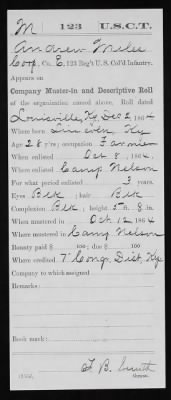 M 123 U.S.C.T.
Andrew Miles
Corp, Co. E, 123 Reg't U. S. Col'd Infantry.
Appears on
Company Muster-in and Descriptive Roll
of the organization named above. Roll dated
Louisville, Ky, Dec 2, 1864
Where born Ky
Age 28 y'rs; occupation Farmer
When enlisted Oct 8, 1864.
Where enlisted Camp Nelson
For what period enlisted 3 years.
Eyes Blk; hair Blk
Complexion Blk; height 5 ft. 8 in.
When mustered in Oct 12, 1864
Where mustered in Camp Nelson
Bounty paid $ 100; due $ 100
Where credited 7" Cong. Dist, Ky
Company to which assigned
Remarks:
Book mark:
F. B. Smith